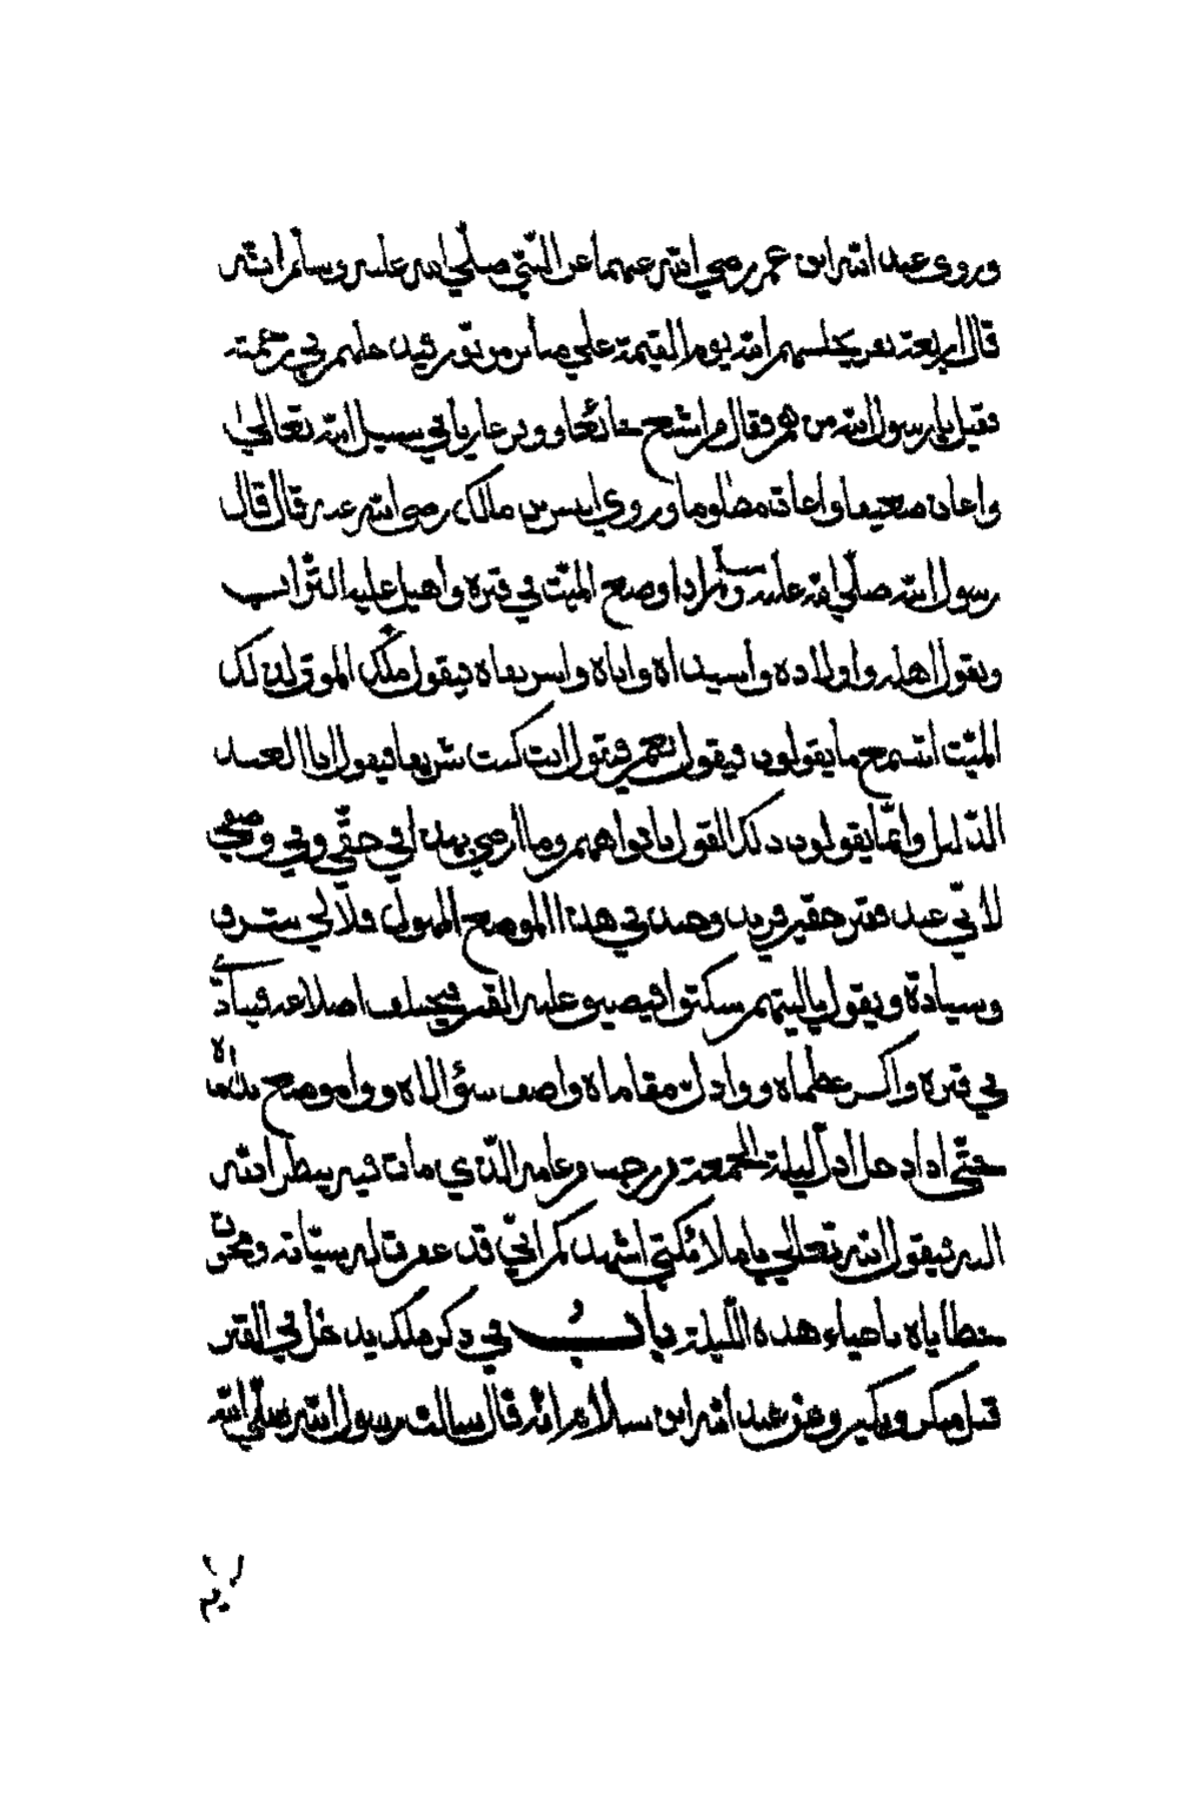 وروى عبد الله ابن عمر رضي الله عنهما عن النبي صلّى الله عليه وسلم انّه
قال اربعة نفر يجلسهم الله يوم القيمة على منابر من نور فيدخلهم في رحمته
فقيل يا رسول الله من هم فقال من اشبع جائعا و عاريا في سبيل الله تعالى
واعان ضعيفا واعاث مظلوما وروي انس بن مالك رضى الله عنه قال قال
رسول الله صلّى الله عليه وسلم اذا وضع الميّت في قبره واهيل عليه التّراب
ويقول اهله واولاده وأسيداه واباه واشريفاه فيقول ملك الموكل لذلك
الميّت اتسمع ما يقولون فيقول نعم فيقول انت كنت شريفا فيقول انا العبد
الذليل وانّما يقولون ذلك القول وما ارضي بهذا في حقّي وفي وصفي
لأنّي عبد فقير حقير فريد وحيد في هذا الموضع المهول فلا لي شرف
وسيادة ويقول يا ليتهم سكتوا فيضيق عليه القبر فيختلف اضلاعه فينادي
في قبره واكسر عظماه ووا ذلّ مقاماه واضعف سؤالاه ووا موضع ندّاماه
حتّى اذا دخل اوّل ليلة الجمعة من رجب من عامه الذّي مات فيه ينظر الله
اليه فيقول الله تعالى يا ملائكتي اشهدكم انّي قد غفرت له سيّئاته ومحوت
خطاياه باحياء هذه اللّيلة باب في ذكر ملك يدخل في القبر
قبل منكر ونكير وعن عبد الله ابن سلام انّه قال سالت رسول الله صلّى الله